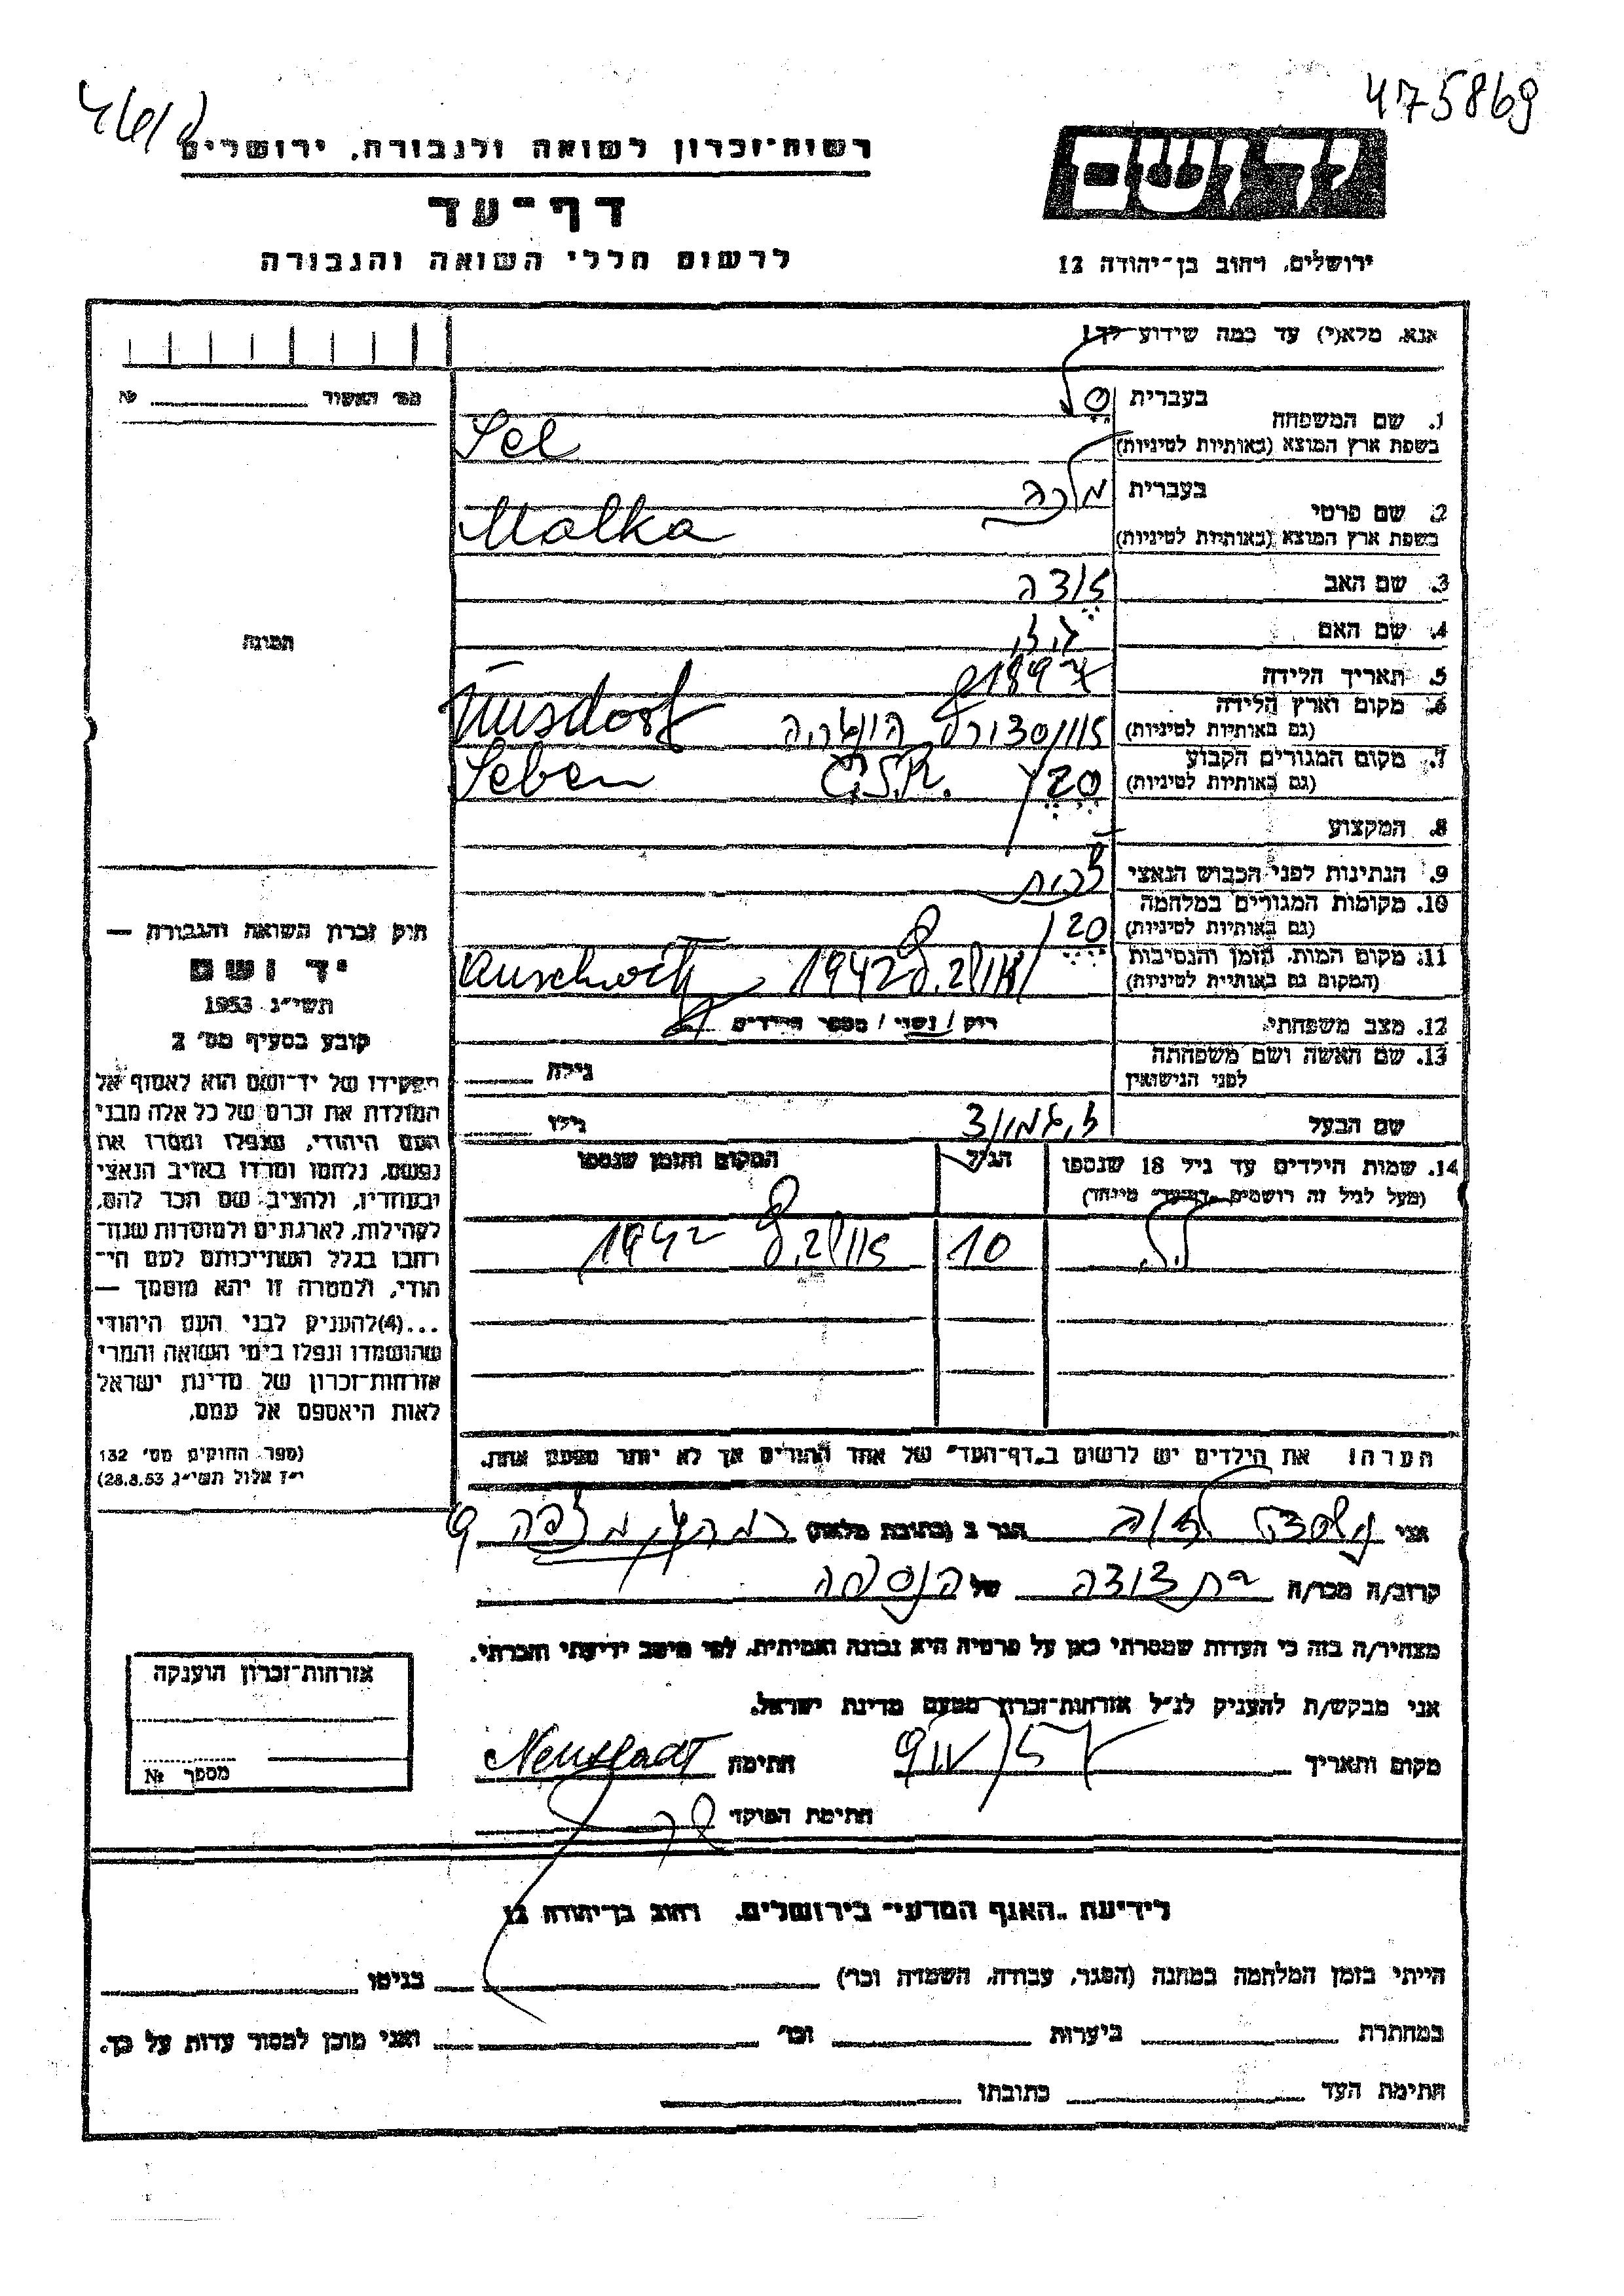 475869
רשות־זכרון לשואה ולגבורה, ירושלים
דף־עד
לרשום חללי השואה והגבורה
יד ושם
ירושלים, רחוב בן־יהודה 12
אנא, מלא(י) עד כמה שידוע לך!
מס׳ האשור № ______
1. שם המשפחה
בעברית סל
בשפת ארץ המוצא (באותיות לטיניות) Sel
2. שם פרטי
בעברית מלכה
בשפת ארץ המוצא (באותיות לטיניות) Malka
3. שם האב
4. שם האם
5. תאריך הלידה 1897
6. מקום וארץ הלידה
(גם באותיות לטיניות)
7. מקום המגורים הקבוע
(גם באותיות לטיניות) Č.S.R. Seben
8. המקצוע
9. הנתינות לפני הכבוש הנאצי
10. מקומות המגורים במלחמה
(גם באותיות לטיניות)
11. מקום המות, הזמן והנסיבות
(המקום גם באותיות לטיניות) 1942
12. מצב משפחתי רוק / נשוי / מספר הילדים
13. שם האשה ושם משפחתה
לפני הנישואין גילה
שם הבעל גילו
14. שמות הילדים עד גיל 18 שנספו
(מעל לגיל זה רושמים "דף־עד" מיוחד)
הגיל
המקום והזמן שנספו
10 1942
הערה: את הילדים יש לרשום ב"דף־העד" של אחד ההורים אך לא יותר מפעם אחת.
תמונה
חוק זכרון השואה והגבורה —
יד ושם
תשי״ג 1953
קובע בסעיף מס׳ 2
תפקידו של יד־ושם הוא לאסוף אל
המולדת את זכרם של כל אלה מבני
העם היהודי, שנפלו ומסרו את
נפשם, נלחמו ומרדו באויב הנאצי
ובעוזריו, ולהציב שם וזכר להם,
לקהילות, לארגונים ולמוסדות שנח־
רבו בגלל השתייכותם לעם הי־
הודי, ולמטרה זו יהא מוסמך —
...(4)להעניק לבני העם היהודי
שהושמדו ונפלו בימי השואה והמרי
אזרחות־זכרון של מדינת ישראל
לאות היאספם אל עמם.
(ספר החוקים מס׳ 132
י״ז אלול תשי״ג 28.8.53)
אני הגר ב (כתובת מלאה)
קרוב/ה מכר/ה בת דודה של הנספה
מצהיר/ה בזה כי העדות שמסרתי כאן על פרטיה היא נכונה ואמיתית, לפי מיטב ידיעתי והכרתי.
אני מבקש/ת להעניק לנ״ל אזרחות־זכרון מטעם מדינת ישראל.
מקום ותאריך חתימה Neustadt
חתימת הפוקד
אזרחות־זכרון הוענקה
מספר №
לידיעת "האגף המדעי" בירושלים, רחוב בן־יהודה 12
הייתי בזמן המלחמה במחנה (הסגר, עבודה, השמדה וכו׳) ______ בגיטו ______
במחתרת ______ ביערות ______ וכו׳ ______ ואני מוכן למסור עדות על כך.
חתימת העד ______ כתובתו ______